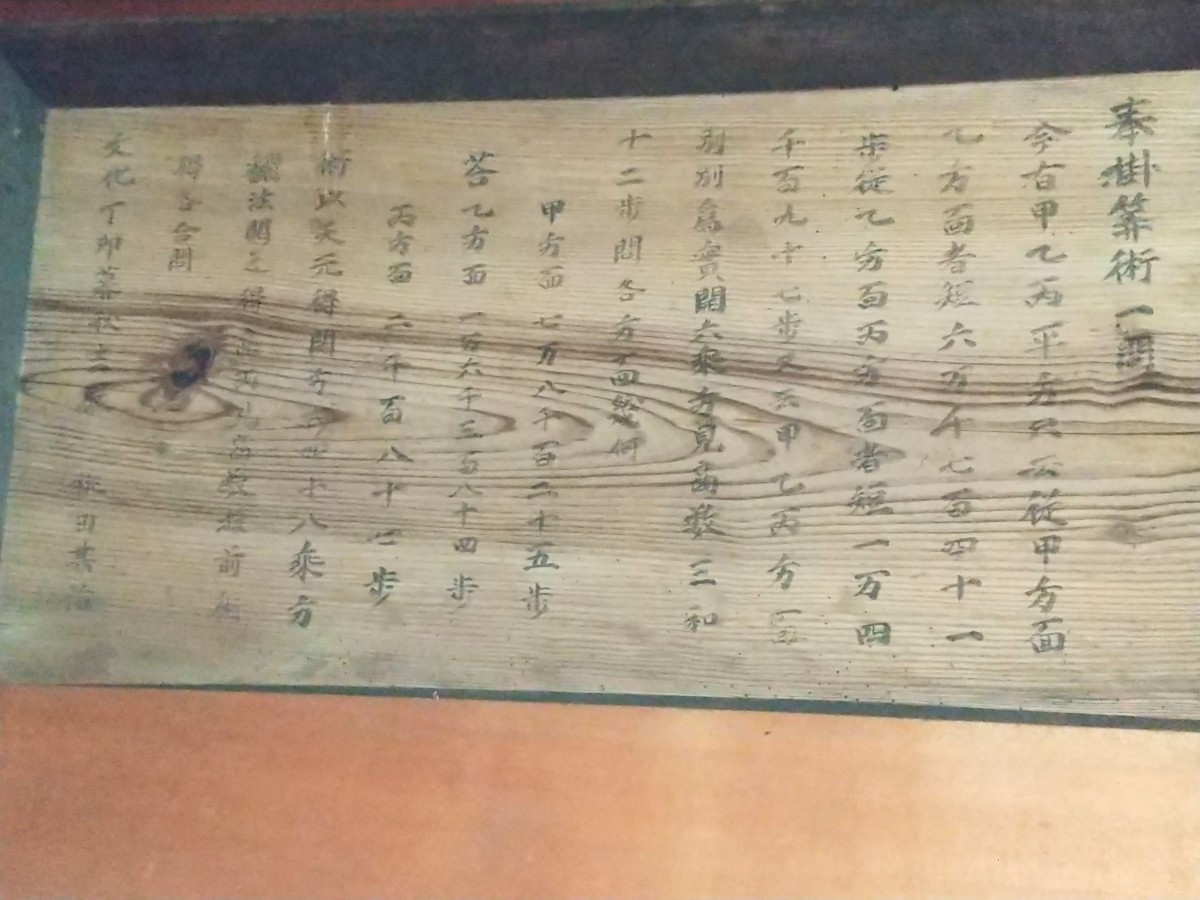 奉掛筭術一問
今有甲乙丙平方只云從甲方面
乙方面者短六万千七百四十一
步從乙方面丙方面者短一万四
千百九十七步又云甲乙丙方面
別別爲實開六乘方見商數三和
十二步問各方面幾何
甲方面七万八千百二十五步
荅乙方面一万六千三百八十四步
丙方面二千百八十七步
術以天元得開方四十八乘方
飜法開之得商數推前術
得各合問
文化丁卯暮秋 田